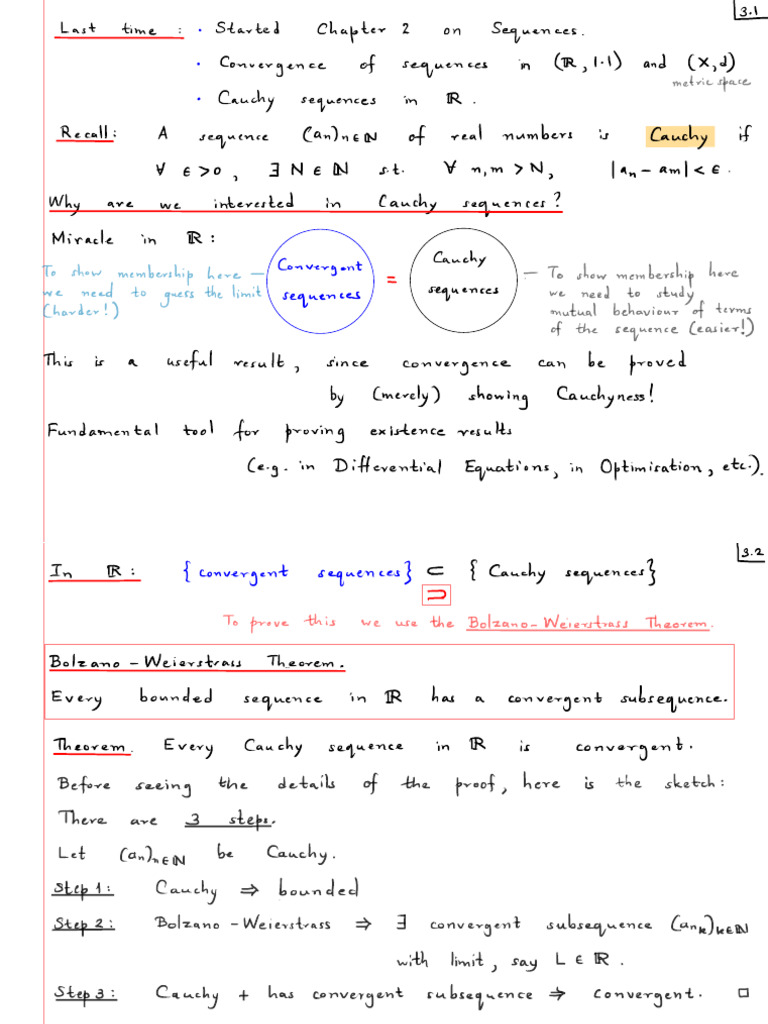 3.1
Last time : · Started Chapter 2 on Sequences.
· Convergence of sequences in (ℝ, |·|) and (X,d)
metric space
· Cauchy sequences in ℝ.
Recall: A sequence (an)n∈ℕ of real numbers is Cauchy if
∀ ϵ>0, ∃ N ∈ ℕ s.t. ∀ n,m > N, |an - am| < ϵ.
Why are we interested in Cauchy sequences?
Miracle in ℝ:
Convergent sequences = Cauchy sequences
To show membership here —
we need to guess the limit
(harder!)
— To show membership here
we need to study
mutual behaviour of terms
of the sequence (easier!)
This is a useful result, since convergence can be proved
by (merely) showing Cauchyness!
Fundamental tool for proving existence results
(e.g. in Differential Equations, in Optimisation, etc.).
3.2
In ℝ: {convergent sequences} ⊂ {Cauchy sequences}
⊃
To prove this we use the Bolzano-Weierstrass Theorem.
Bolzano-Weierstrass Theorem.
Every bounded sequence in ℝ has a convergent subsequence.
Theorem. Every Cauchy sequence in ℝ is convergent.
Before seeing the details of the proof, here is the sketch:
There are 3 steps.
Let (an)n∈ℕ be Cauchy.
Step 1: Cauchy ⇒ bounded
Step 2: Bolzano-Weierstrass ⇒ ∃ convergent subsequence (ank)k∈ℕ
with limit, say L ∈ ℝ.
Step 3: Cauchy + has convergent subsequence ⇒ convergent. □